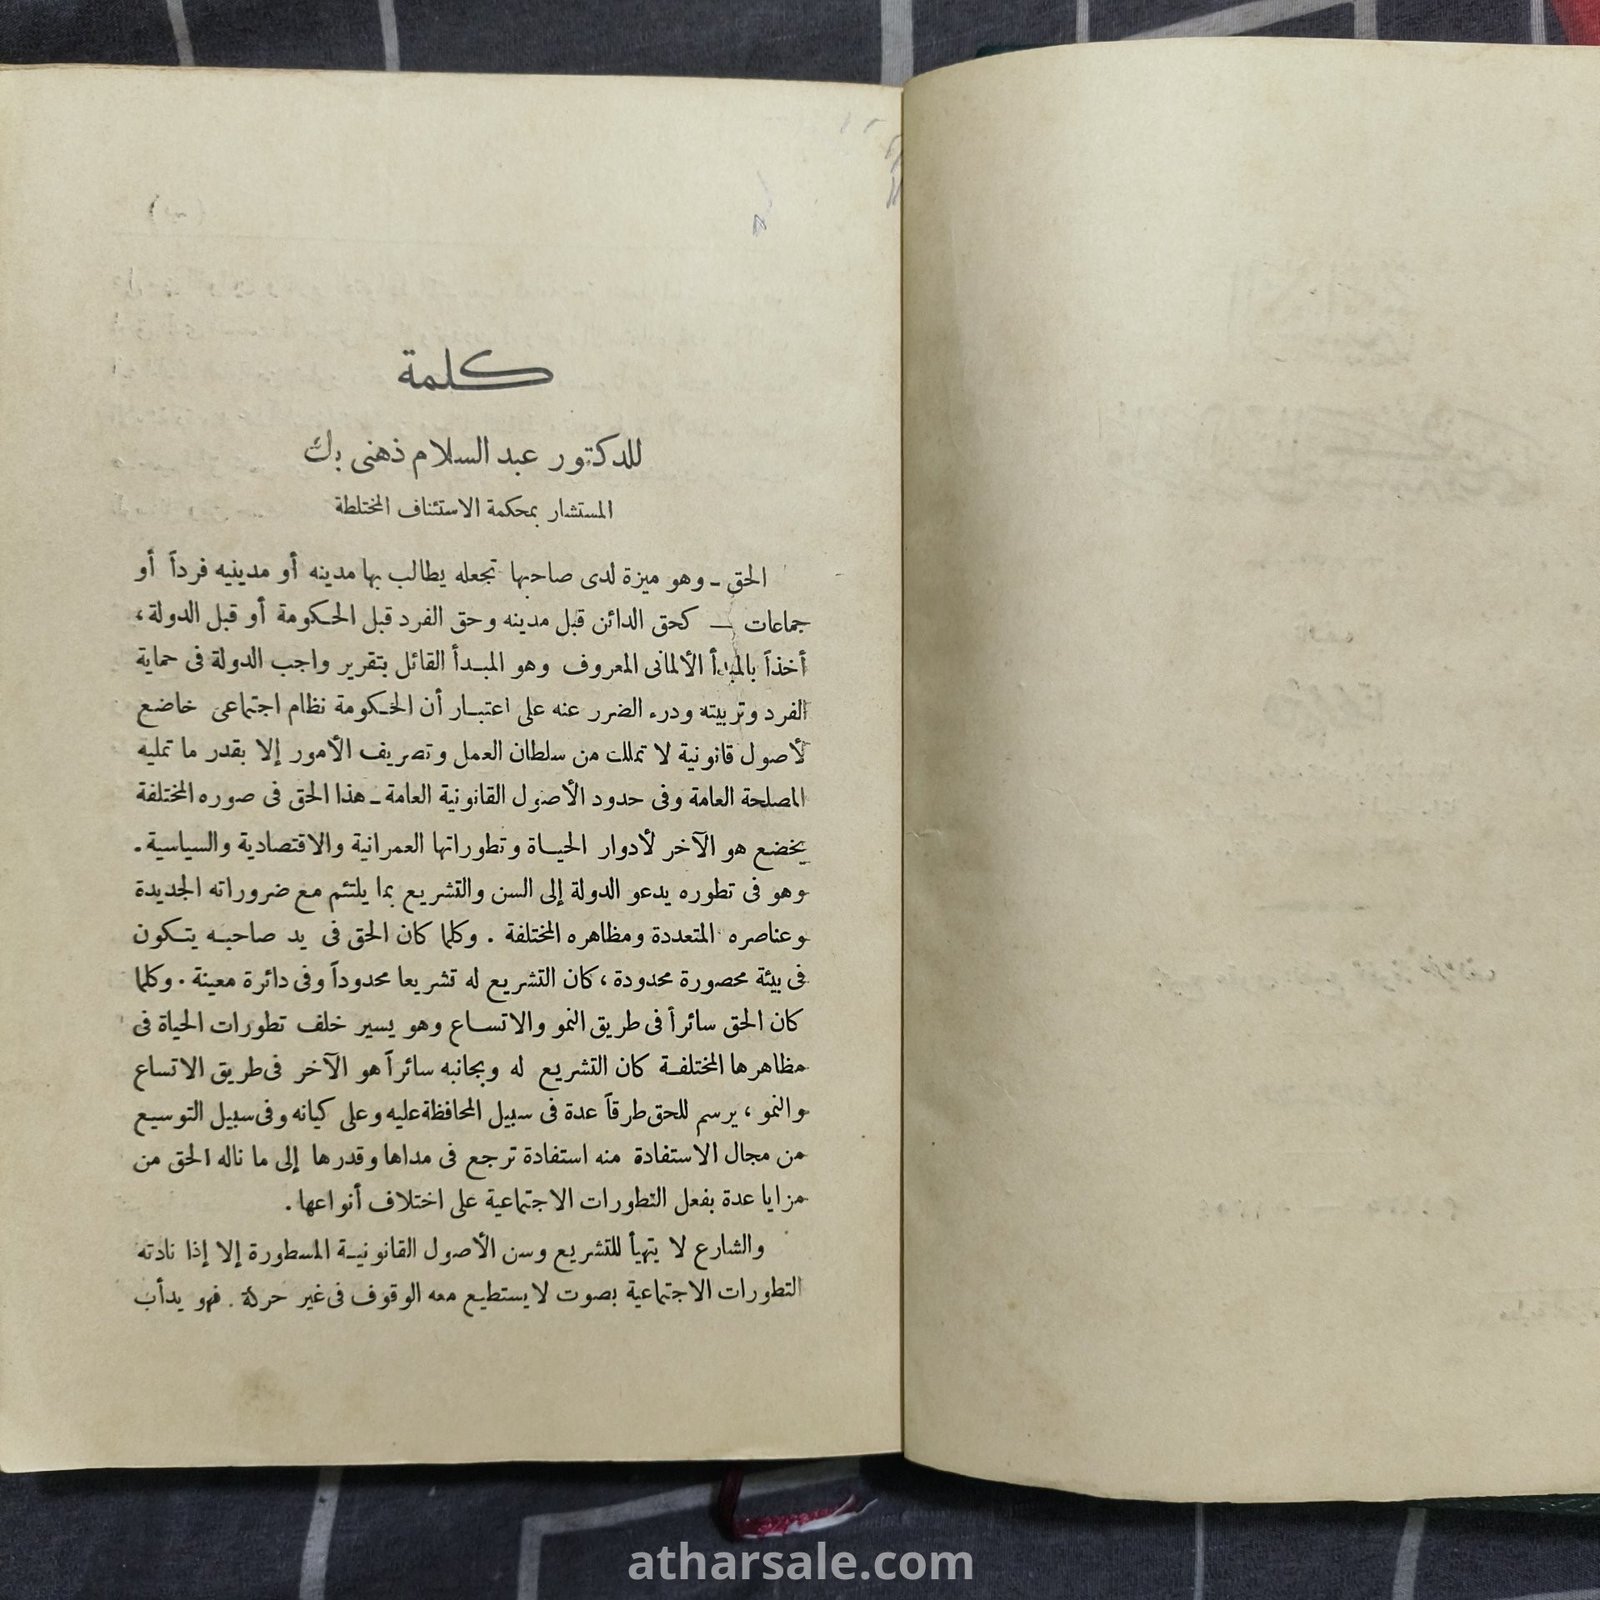 كلمة
للدكتور عبد السلام ذهنى بك
المستشار بمحكمة الاستئناف المختلطة
الحق ـ وهو ميزة لدى صاحبها تجعله يطالب بها مدينه أو مدينيه فرداً أو
جماعات ــ كحق الدائن قبل مدينه وحق الفرد قبل الحكومة أو قبل الدولة،
أخذاً بالمبدأ الألمانى المعروف وهو المبدأ القائل بتقرير واجب الدولة فى حماية
الفرد وتربيته ودرء الضرر عنه على اعتبار أن الحكومة نظام اجتماعى خاضع
لأصول قانونية لا تملك من سلطان العمل وتصريف الأمور إلا بقدر ما تمليه
المصلحة العامة وفى حدود الأصول القانونية العامة ـ هذا الحق فى صوره المختلفة
يخضع هو الآخر لأدوار الحياة وتطوراتها العمرانية والاقتصادية والسياسية.
وهو فى تطوره يدعو الدولة إلى السن والتشريع بما يلتئم مع ضروراته الجديدة
وعناصره المتعددة ومظاهره المختلفة . وكلما كان الحق فى يد صاحبه يتكون
فى بيئة محصورة محدودة، كان التشريع له تشريعا محدوداً وفى دائرة معينة . وكلما
كان الحق سائراً فى طريق النمو والاتساع وهو يسير خلف تطورات الحياة فى
مظاهرها المختلفة كان التشريع له وبجانبه سائراً هو الآخر فى طريق الاتساع
والنمو ، يرسم للحق طرقاً عدة فى سبيل المحافظة عليه وعلى كيانه وفى سبيل التوسيع
من مجال الاستفادة منه استفادة ترجع فى مداها وقدرها إلى ما ناله الحق من
مزايا عدة بفعل التطورات الاجتماعية على اختلاف أنواعها .
والشارع لا يتهيأ للتشريع وسن الأصول القانونية المسطورة إلا إذا نادته
التطورات الاجتماعية بصوت لا يستطيع معه الوقوف فى غير حركة . فهو يدأب
atharsale.com